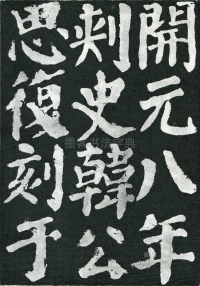 開元八年
刺史韓公
思復刻于